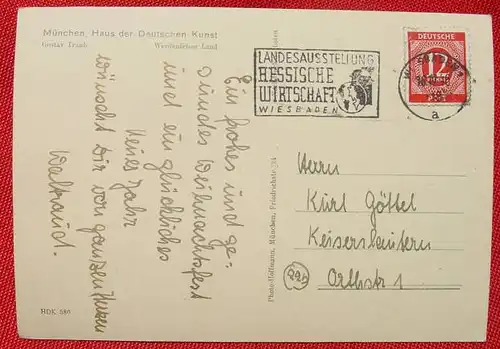 München, Haus der Deutschen Kunst
Gustav Traub
Werdenfelser Land
Ein frohes und ge-
sundes Weihnachtsfest
und ein glückliches
neues Jahr
wünscht dir von ganzem Herzen
Waltraud.
HDK 580
Photo-Hoffmann, München, Friedrichstr. 34
LANDESAUSSTELLUNG
HESSISCHE
WIRTSCHAFT
WIESBADEN
DEUTSCHE
12
a
Herrn
Kurt Göttel
Keiserslautern
Orthstr 1